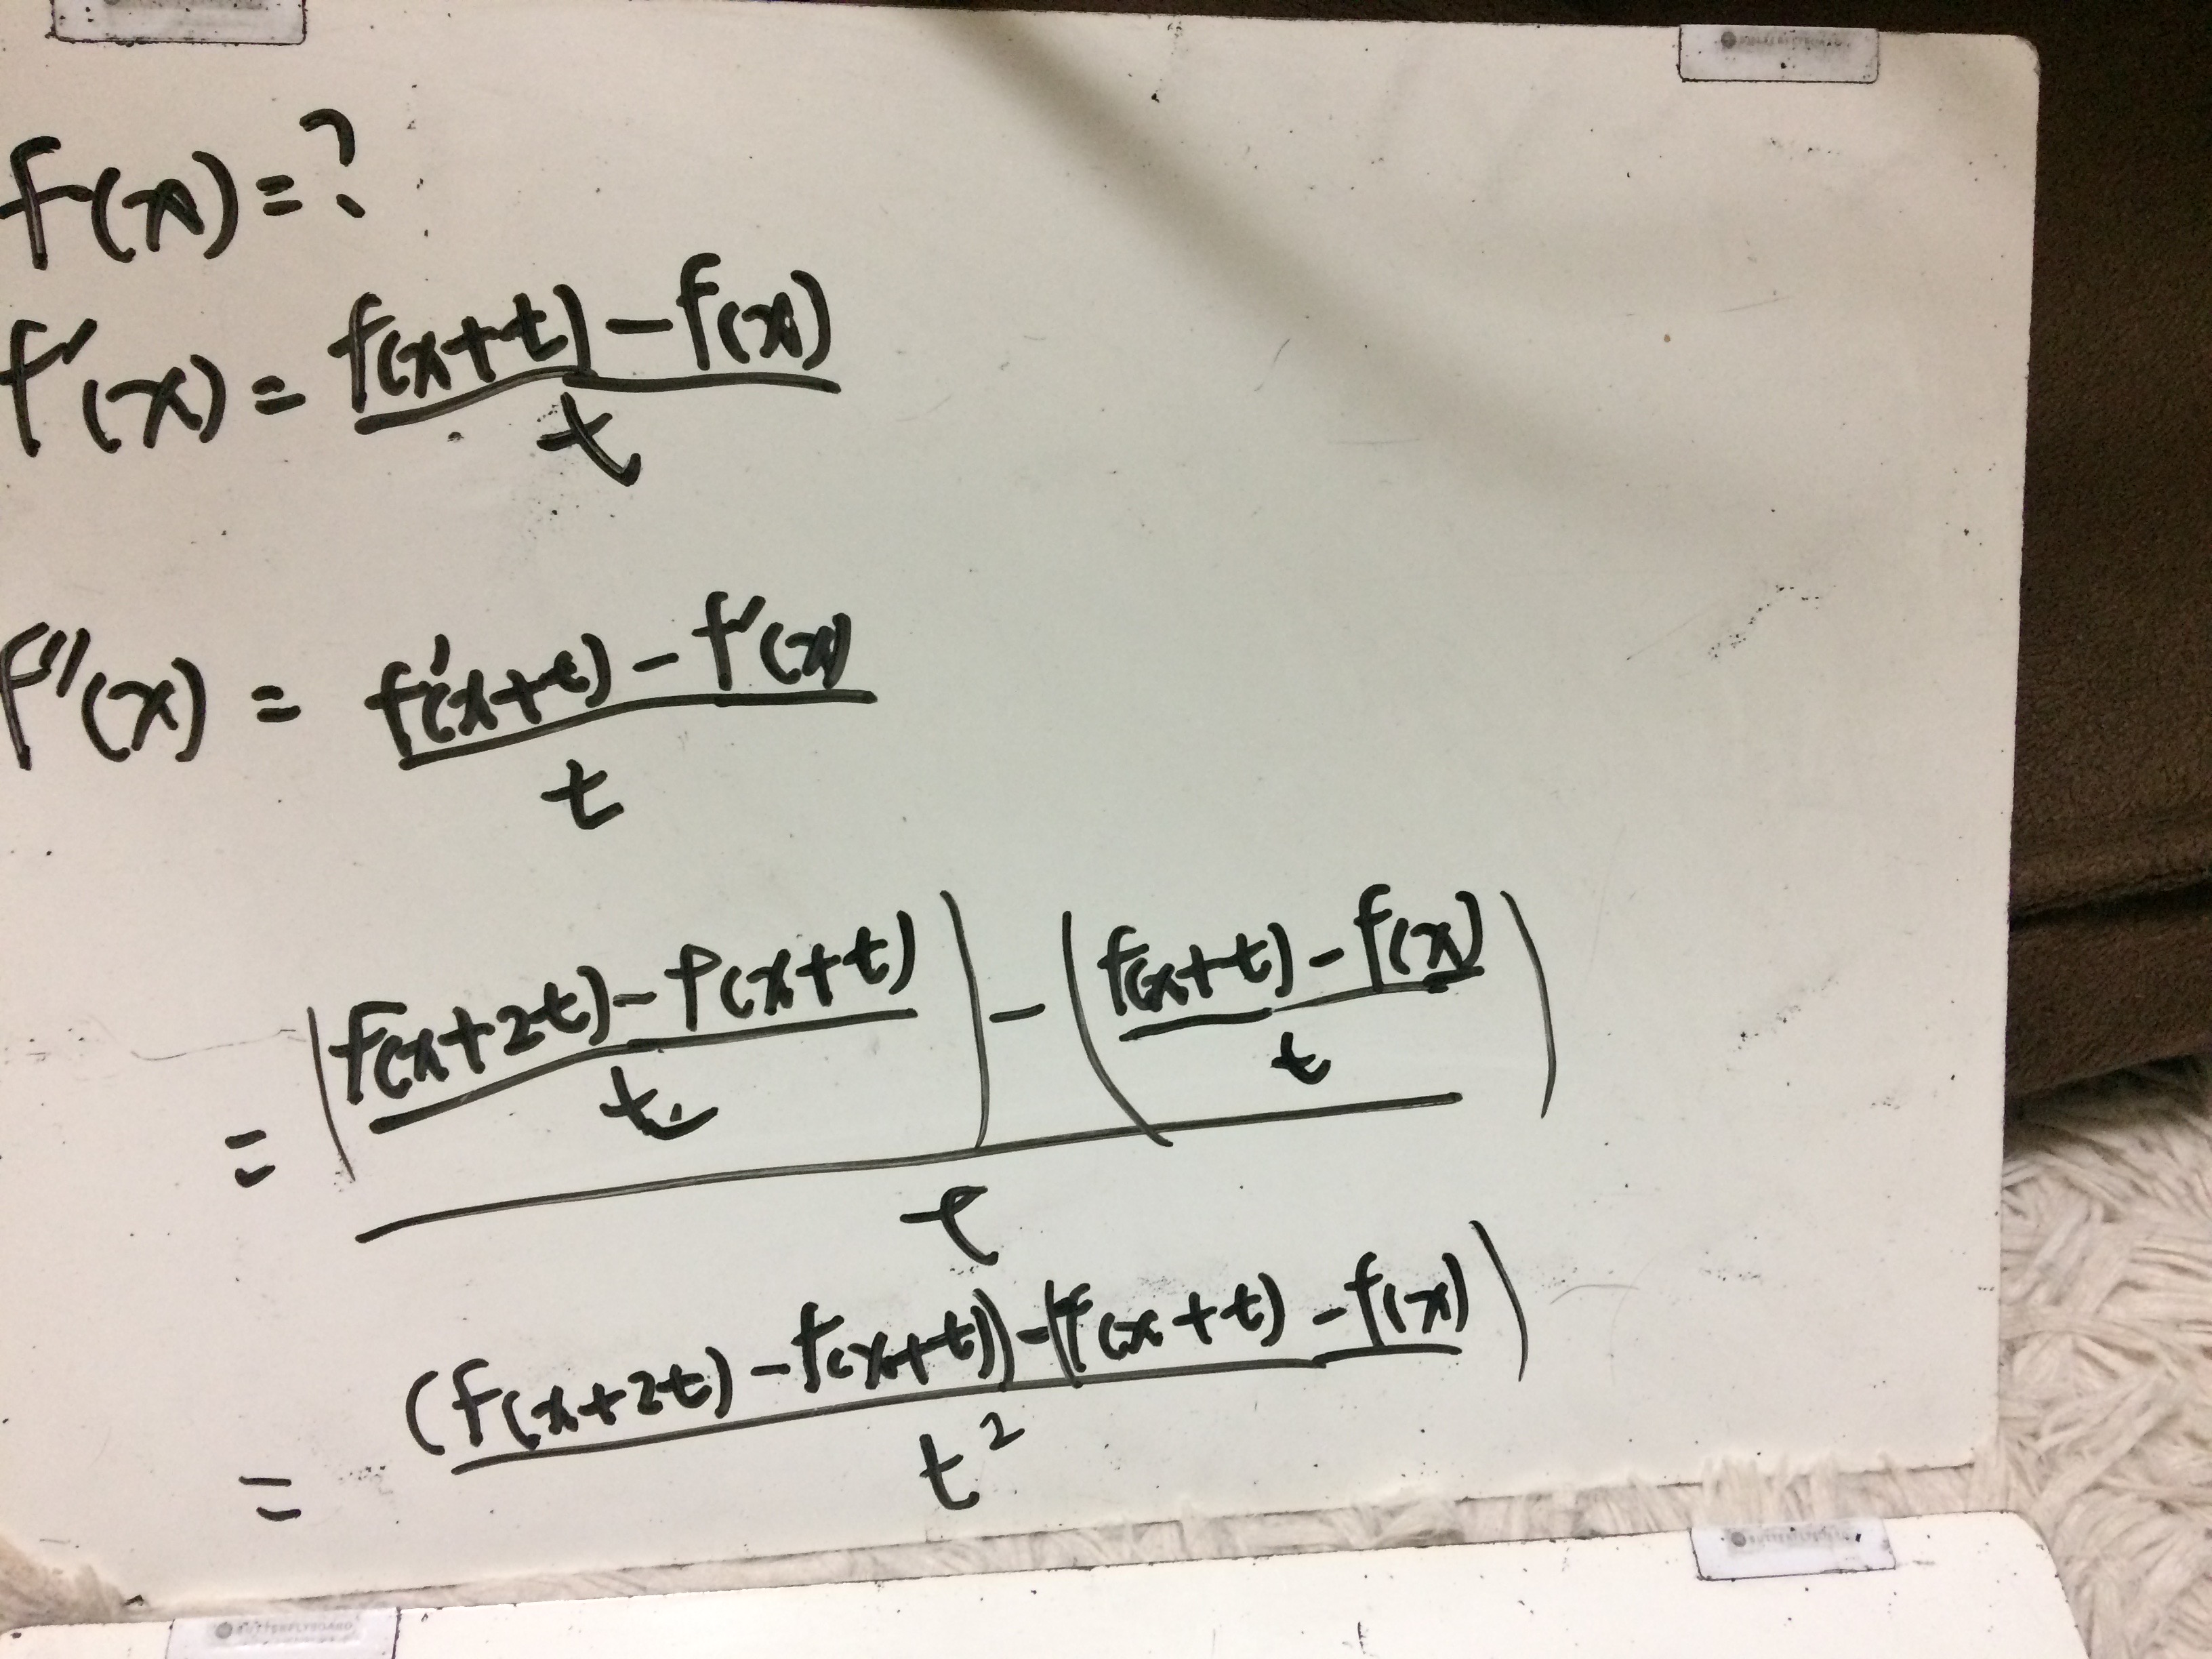 f(x) = ?
f'(x) = f(x+t) - f(x)
t
f''(x) = f'(x+t) - f'(x)
t
= (f(x+2t) - f(x+t)) - (f(x+t) - f(x))
t t
t
= (f(x+2t) - f(x+t)) - (f(x+t) - f(x))
t²